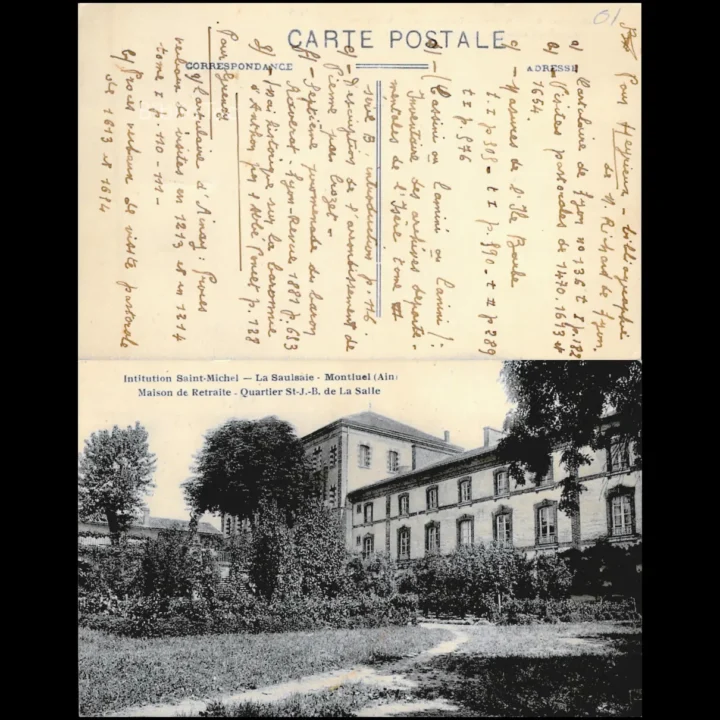 CARTE POSTALE
CORRESPONDANCE
ADRESSE
01
Pour Heyrieux - bibliographie
de M. Richard de Lyon.
a) Cartulaire de Lyon no 136 t I p. 182
b) Visites pastorales de 1470. 1613 et
1654.
c) - Masures de l'Ile Barbe
t. I p 309 - t I p. 590 - t II p 289
t I p. 576
d) - (Cassini ou Camini ou Canini):
Inventaire des archives départe-
mentales de l'Isère tome II
série B: introduction p. 116
e) - Description de l'arrondissement de
Vienne par Crozet -
f) - Septième promenade du baron
Raverat. Lyon-Revue 1881 p. 653
g) - Essai historique sur la baronnie
d'Anthon par l'Abbé Pouet p. 128
Pour Grenay
a) Cartulaire d'Ainay: Procès
verbaux de visites en 1213 et en 1214
tome I p. 110 - 111 -
b) Procès verbaux de visite pastorale
de 1613 et 1614
Intitution Saint-Michel — La Saulsaie - Montluel (Ain)
Maison de Retraite - Quartier St-J.-B. de La Salle